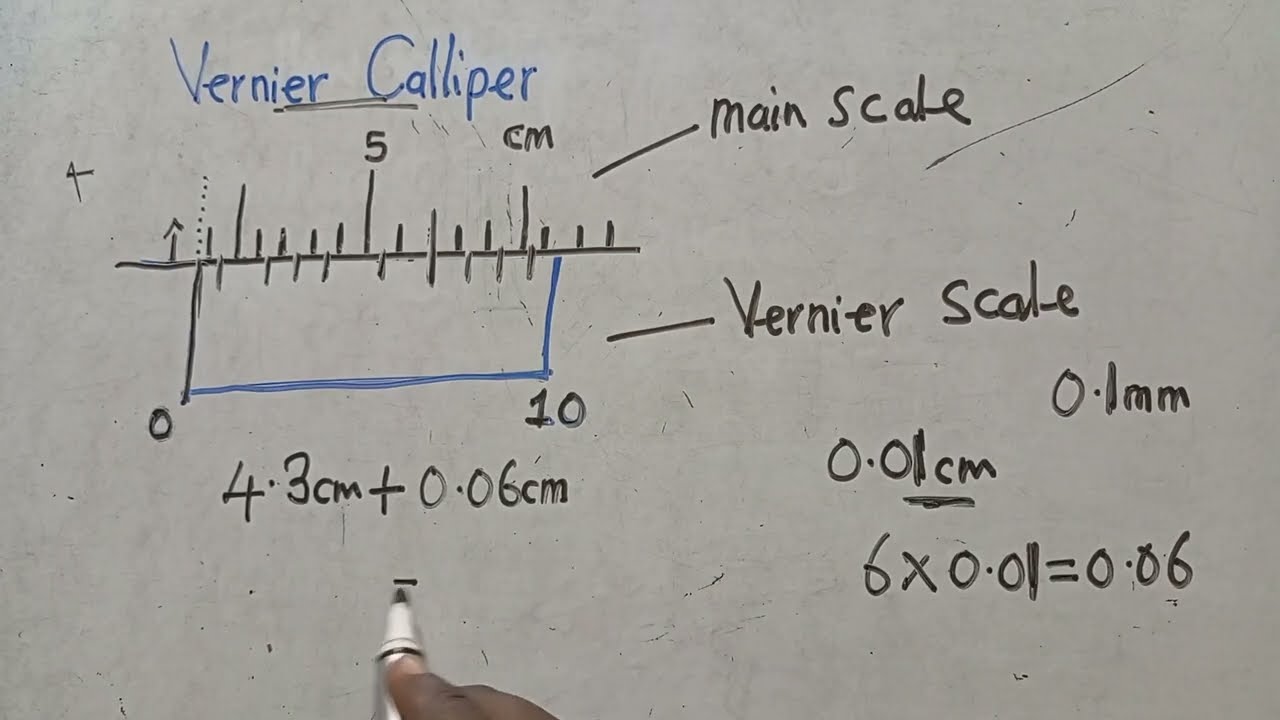 Vernier Calliper
main scale
5 cm
Vernier scale
0 10
0.1mm
0.01cm
4.3cm + 0.06cm
6 × 0.01 = 0.06